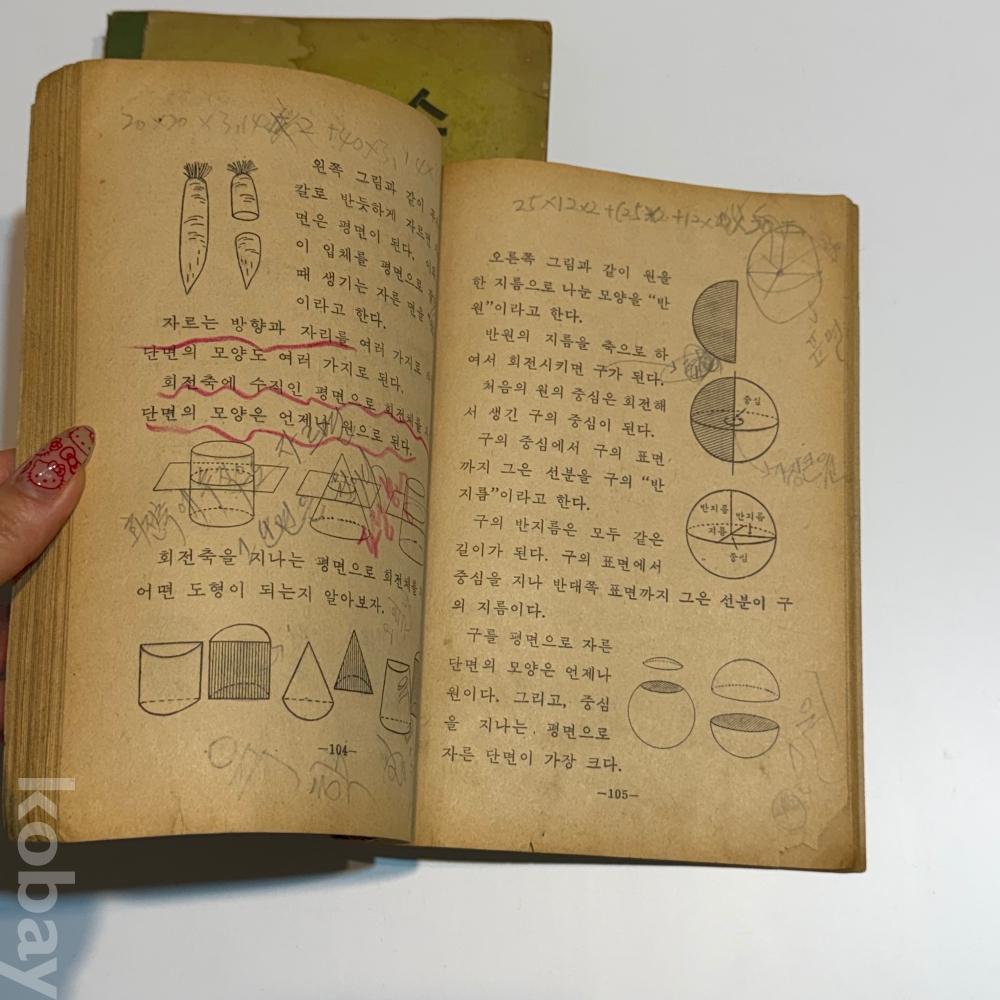 20×20×3.14×2+40×3.14×
왼쪽 그림과 같이
칼로 반듯하게 자르면
면은 평면이 된다.
이 입체를 평면으로
때 생기는 자른 면을
이라고 한다.
자르는 방향과 자리를 여러 가지로
단면의 모양도 여러 가지로 된다.
회전축에 수직인 평면으로 회전체를
단면의 모양은 언제나 원으로 된다.
회전축을 지나는 평면으로 회전체를
어떤 도형이 되는지 알아보자.
—104—
25×12×2+(25×2+12×
오른쪽 그림과 같이 원을
한 지름으로 나눈 모양을 “반
원”이라고 한다.
반원의 지름을 축으로 하
여서 회전시키면 구가 된다.
처음의 원의 중심은 회전해
서 생긴 구의 중심이 된다.
중심
구의 중심에서 구의 표면
까지 그은 선분을 구의 “반
지름”이라고 한다.
구의 반지름은 모두 같은
길이가 된다. 구의 표면에서
중심을 지나 반대쪽 표면까지 그은 선분이 구
의 지름이다.
반지름 반지름
지름
중심
구를 평면으로 자른
단면의 모양은 언제나
원이다. 그리고, 중심
을 지나는 평면으로
자른 단면이 가장 크다.
—105—
kobay